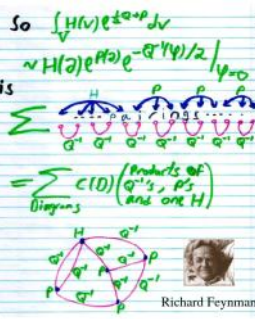 So ∫_V H(v) e^{½Q+P} dv
~ H(∂) e^{P(∂)} e^{-Q⁻¹(φ)/2} |_{φ=0}
is
H P P P
Σ ---- pairings ----
Q⁻¹ Q⁻¹ Q⁻¹ Q⁻¹ Q⁻¹ Q⁻¹ Q⁻¹
= Σ C(D) (Products of
Q⁻¹'s, P's
and one H)
Diagrams
H Q⁻¹
Q⁻¹ Q⁻¹ Q⁻¹ P
Q⁻¹ P Q⁻¹
P Q⁻¹ P
Richard Feynman